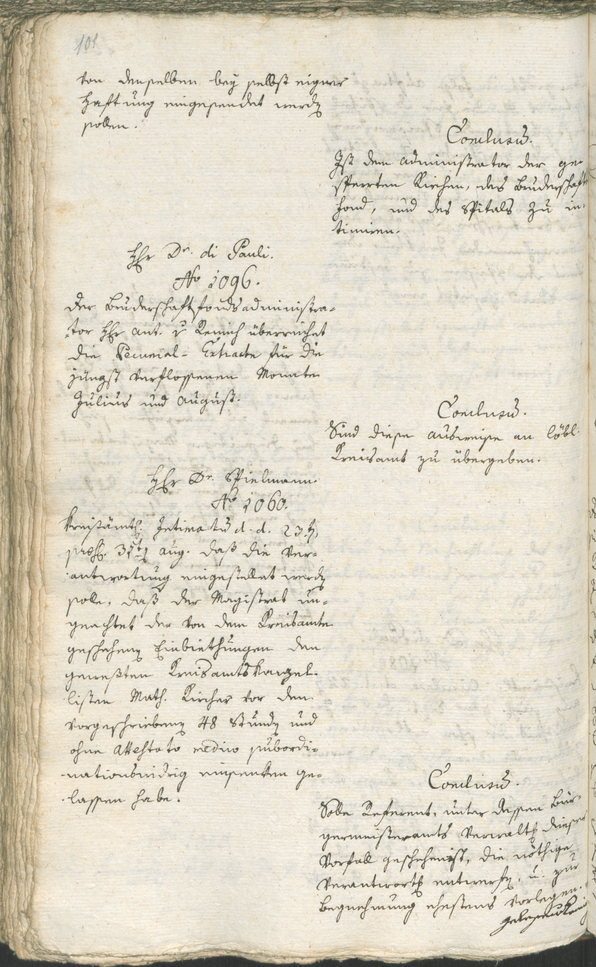 101
von denselben bey selbst eigner
Haftung eingesendet werden
sollen.
Conclusum.
Ist dem Administrator der ge-
sperrten Kirchen, des Bruderschaft
fond, und des Spitals zu in-
timiren.
Hr Dr. di Pauli.
No 1096.
Der Bruderschaftsfondsadministra-
tor Hr Ant. v überreichet
die Extracte für die
jüngst verflossenen Monate
Julius und August.
Conclusum.
Sind diese Ausweise an löbl.
Kreisamt zu übergeben.
Hr Dr. Spielmann.
No 1060.
Kreisämtl. Intimatum d. d. 23.
31 Aug. daß die Ver-
antwortung eingestellet werden
solle, daß der Magistrat un-
geachtet der von dem Kreisamte
geschehenen Einbiethungen den
gewesten Kreisamtskanzel-
listen Math. Kircher vor den
vorgeschriebenen 48 Stunden und
ohne Attestato medico subordi-
nationswidrig einsenken ge-
lassen habe.
Conclusum.
Habe Referent, unter dessen Bür-
germeisteramts Verwaltung dieser
Vorfall geschehen ist, die nöthige
Verantwortung entwerfen, u. zur
Begnehmung ehestens vorlegen.